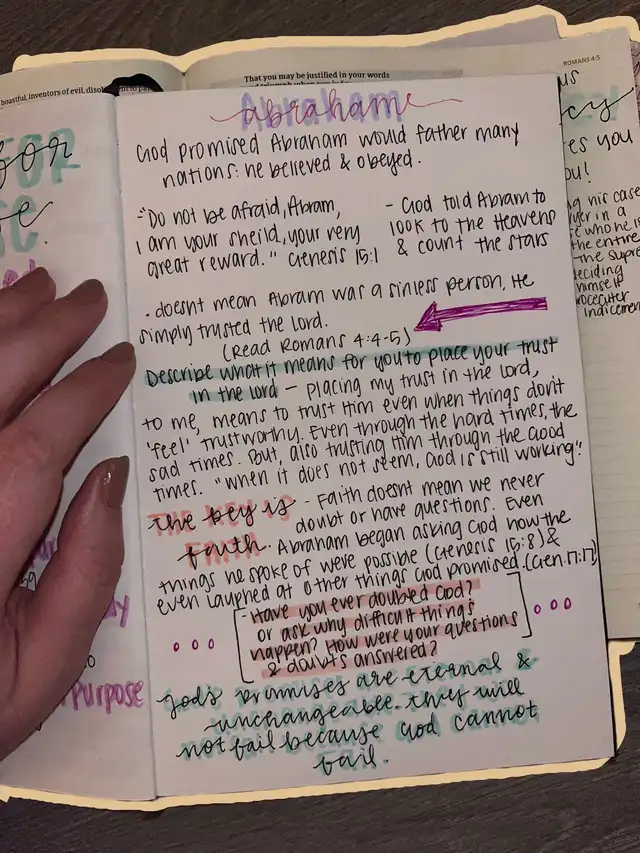 boastful, inventors of evil, disob
That you may be justified in your words
ROMANS 4:5
Abraham
God promised Abraham would father many
nations: he believed & obeyed.
-"Do not be afraid, Abram,
I am your sheild, your very
great reward." Genesis 15:1
- God told Abram to
look to the Heavens
& count the stars
· doesnt mean Abram was a sinless person, He
simply trusted the Lord.
(Read Romans 4:4-5)
Describe what it means for you to place your trust
in the lord - placing my trust in the Lord,
to me, means to trust Him even when things don't
'feel' trustworthy. Even through the hard times, the
sad times. But, also trusting Him through the Good
times. "When it does not seem, God is still working".
the key is - Faith doesnt mean we never
doubt or have questions. Even
faith. Abraham began asking God how the
things he spoke of were possible (Genesis 15:8) &
even laughed at other things God promised. (Gen. 17:17)
- Have you ever doubted God?
or ask why difficult things
happen? How were your questions
& doubts answered?
god's promises are eternal &
unchangeable. they will
not fail because God cannot
fail.
for
Purpose
es you
ou!
ng his case
yer in a
e who he is
the entire
the supr
deciding
himself
rosecuter
indicemen